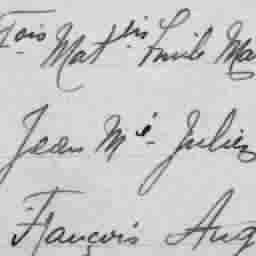 Fois Mat lis Emile Ma
Jean Mie Julien
François Aug